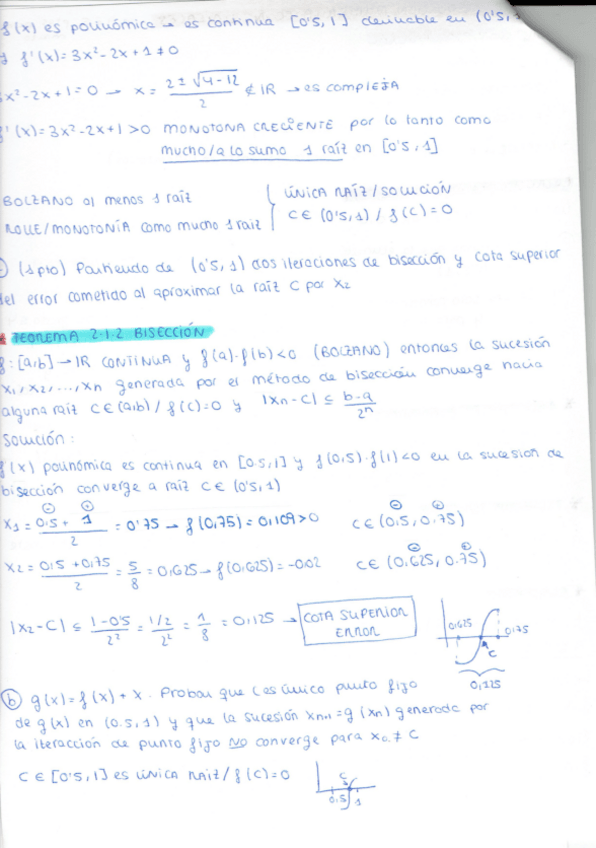 f(x) es polinómica → es continua [0'5, 1] derivable en (0'5,
f'(x) = 3x²-2x+1 ≠ 0
x²-2x+1=0 → x = 2±√4-12 / 2 ∉ IR → es compleja
f'(x) = 3x²-2x+1 >0 MONOTONA CRECIENTE por lo tanto como
mucho/a lo sumo 1 raíz en [0'5, 1]
BOLZANO al menos 1 raíz
ROLLE/MONOTONÍA como mucho 1 raiz
ÚNICA RAÍZ/SOLUCIÓN
C ∈ (0'5, 1) / f(c)=0
(1 pto) Partiendo de (0's, 1) dos iteraciones de bisección y cota superior
del error cometido al aproximar la raíz C por x₂
TEOREMA 2.1.2 BISECCIÓN
f: [a,b] → IR CONTINUA y f(a)·f(b)<0 (BOLZANO) entonces la sucesión
x₁, x₂, ..., xn generada por el método de bisección converge hacia
alguna raíz C∈(a,b) / f(c)=0 y |xn-C| ≤ b-a / 2ⁿ
Solución:
f(x) polinómica es continua en [0.5, 1] y f(0,5)·f(1)<0 en la sucesion de
bisección converge a raíz C∈ (0's, 1)
- +
x₁ = 0.5 + 1 / 2 = 0'75 → f(0,75) = 0,109 >0
- +
C∈(0.5, 0.75)
x₂ = 0.5 + 0.75 / 2 = 5/8 = 0,625 → f(0,625) = -0.02
- +
C∈ (0.625, 0.75)
|x₂-C| ≤ 1-0's / 2² = 1/2 / 2² = 1/8 = 0,125 → COTA SUPERIOR
ERROR
0,625 0,75
C
0,125
(b) g(x) = f(x) + x. Probar que C es único punto fijo
de g(x) en (0.5, 1) y que la sucesión xn+1 = g(xn) generada por
la iteracción de punto fijo NO converge para x₀ ≠ C
C ∈ [0's, 1] es ÚNICA RAIZ / f(c)=0
C
0.5 1